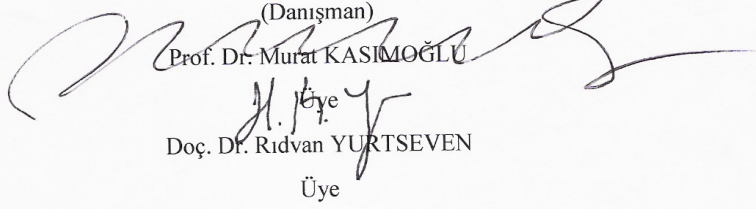 (Danışman)
Prof. Dr. Murat KASIMOĞLU
Üye
Doç. Dr. Rıdvan YURTSEVEN
Üye